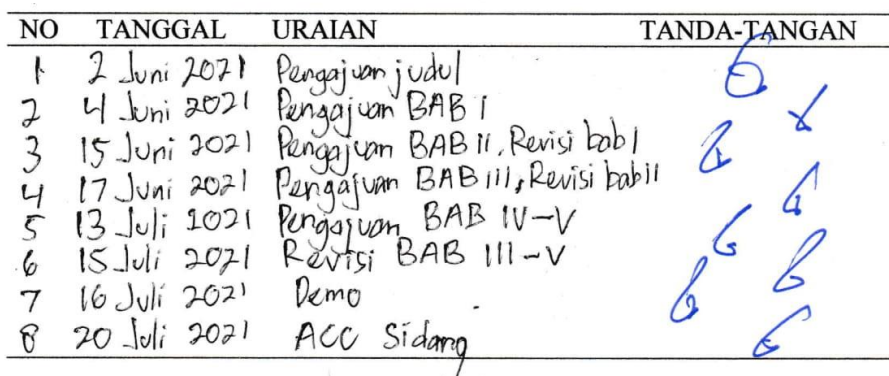 NO TANGGAL URAIAN TANDA-TANGAN
1 2 Juni 2021 Pengajuan judul
2 4 Juni 2021 Pengajuan BAB I
3 15 Juni 2021 Pengajuan BAB II, Revisi bab I
4 17 Juni 2021 Pengajuan BAB III, Revisi bab II
5 13 Juli 2021 Pengajuan BAB IV-V
6 15 Juli 2021 Revisi BAB III-V
7 16 Juli 2021 Demo
8 20 Juli 2021 ACC Sidang